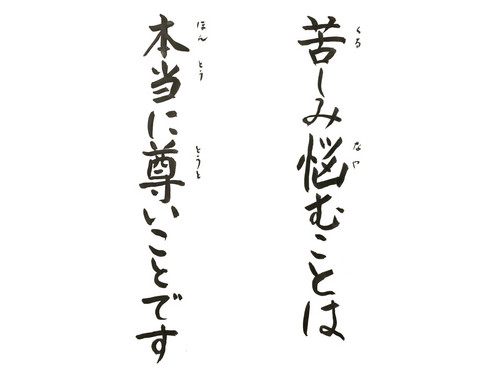 苦しみ悩むことは
くる
なや
本当に尊いことです
ほん
とう
とうと